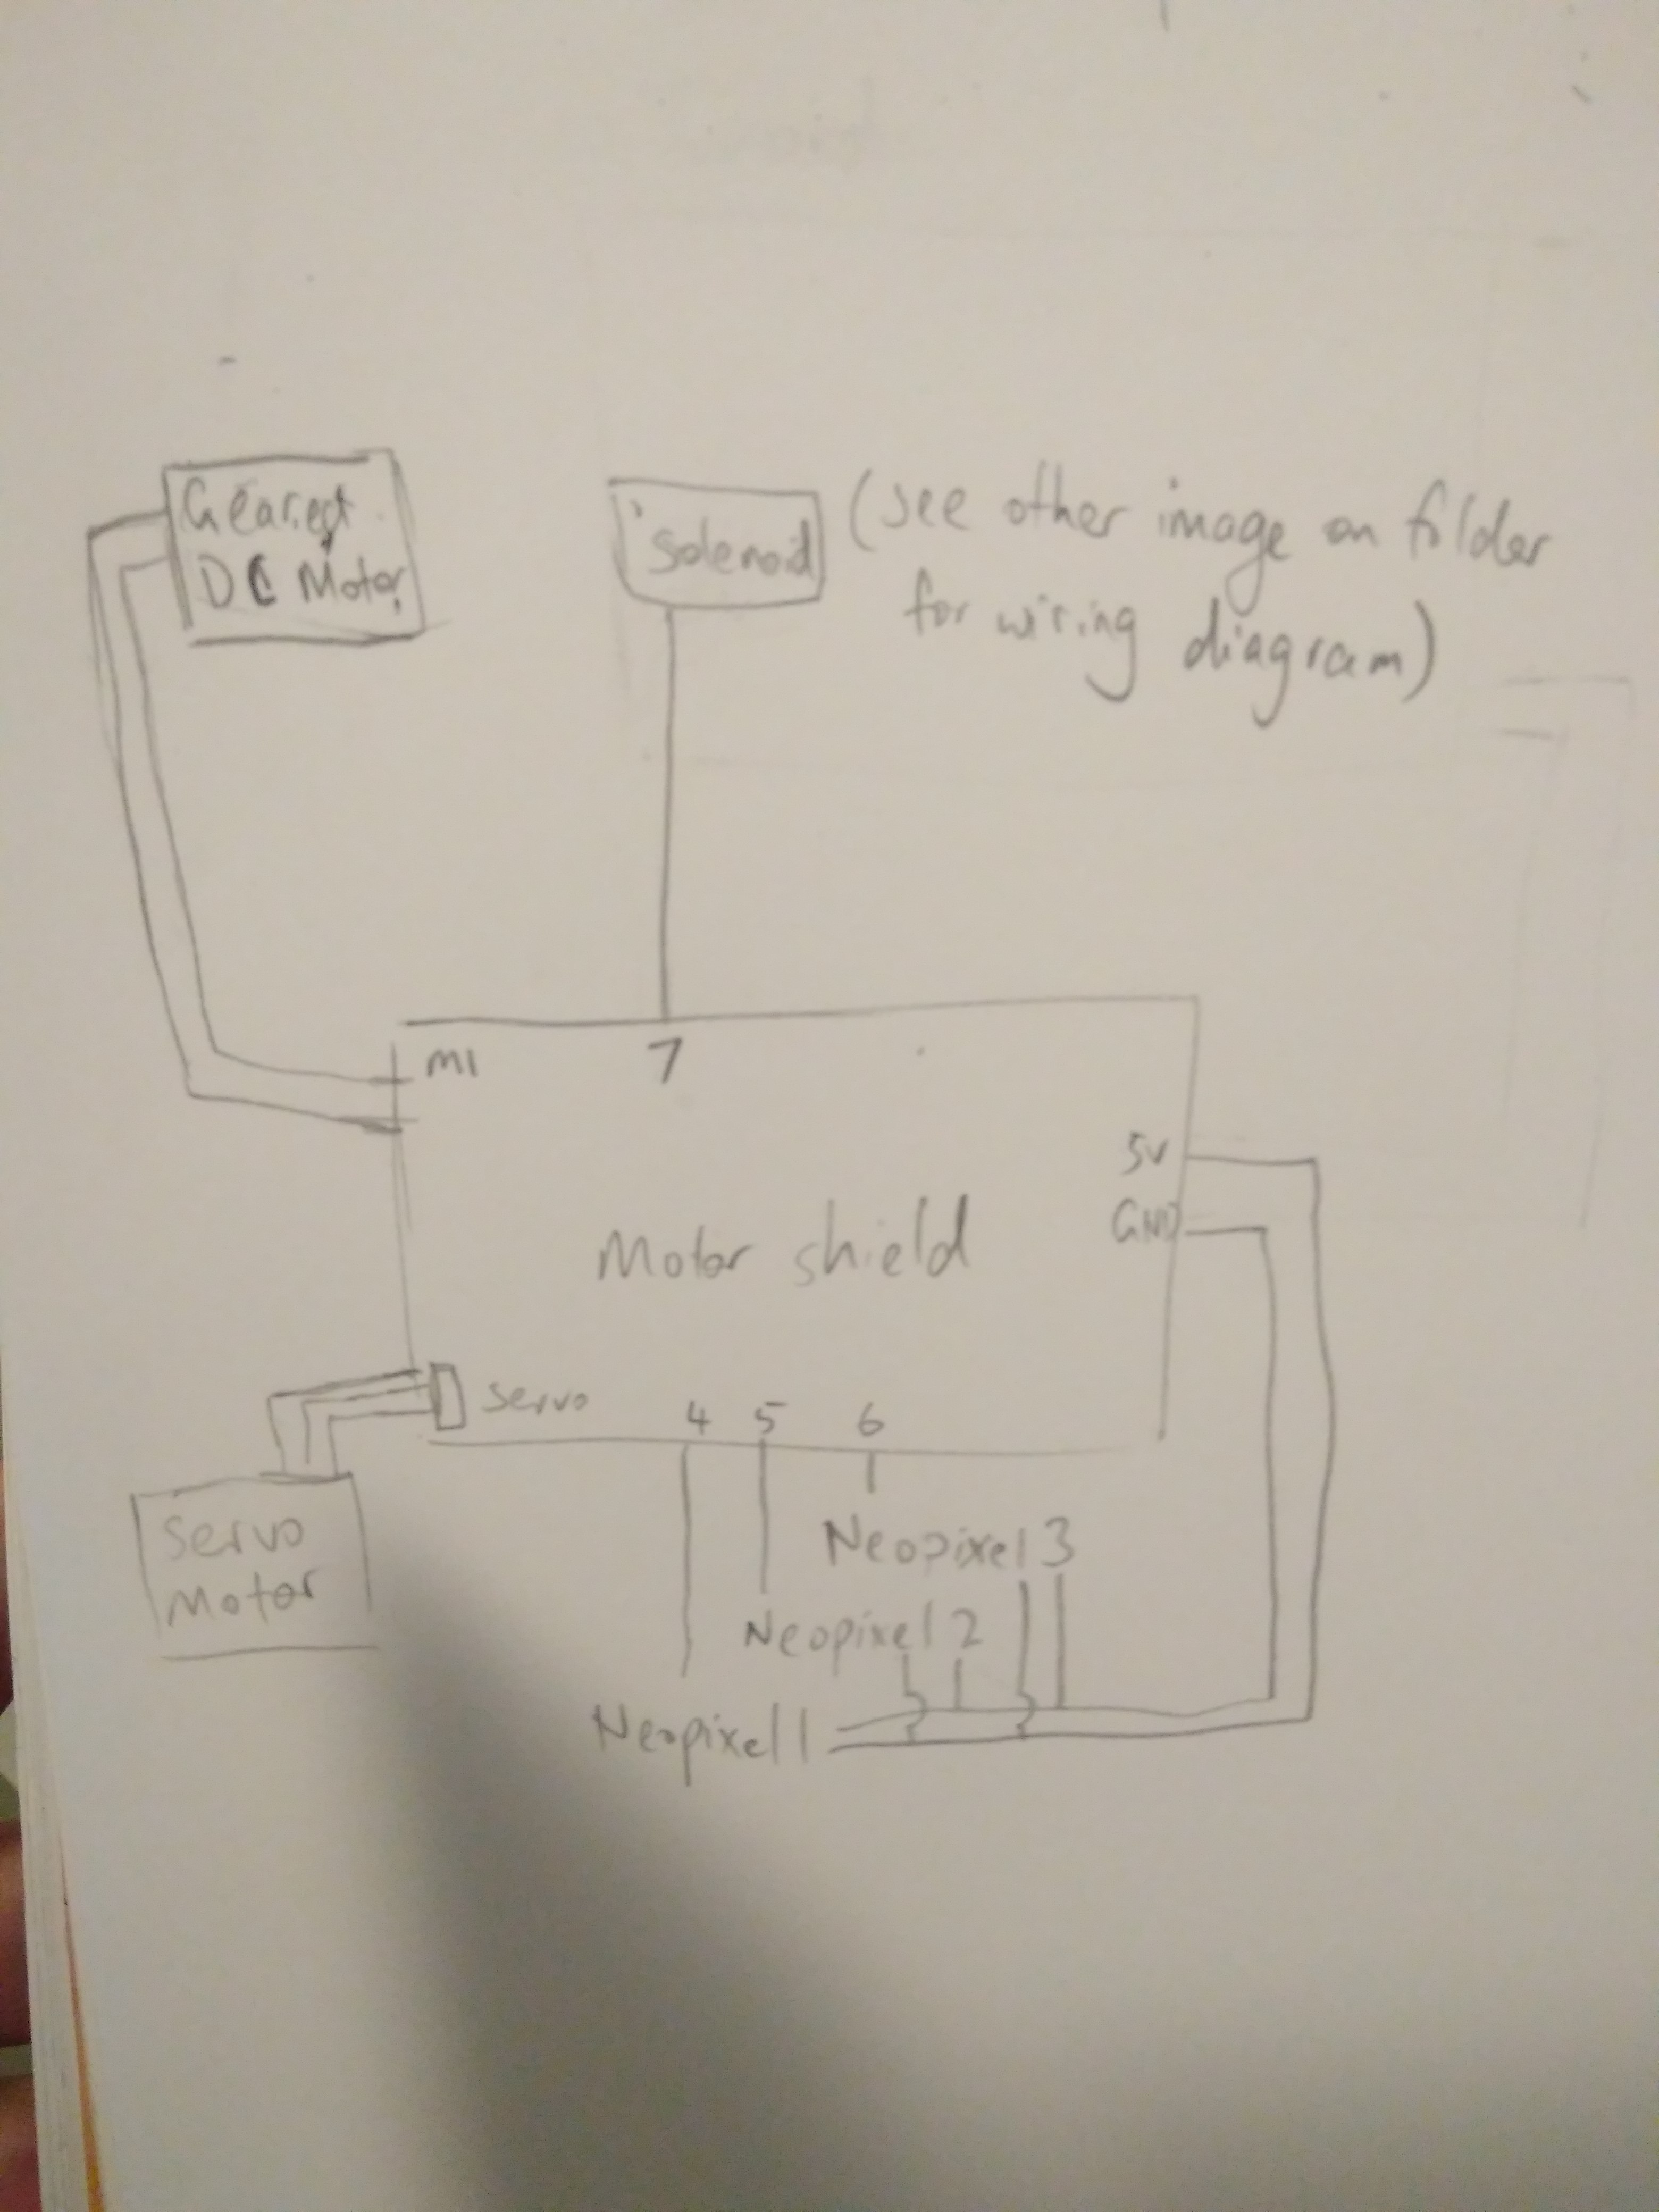 Geared
DC Motor
Solenoid
(see other image on folder
for wiring diagram)
M1
7
5V
GND
Motor shield
servo
4 5 6
Servo
Motor
Neopixel 3
Neopixel 2
Neopixel 1